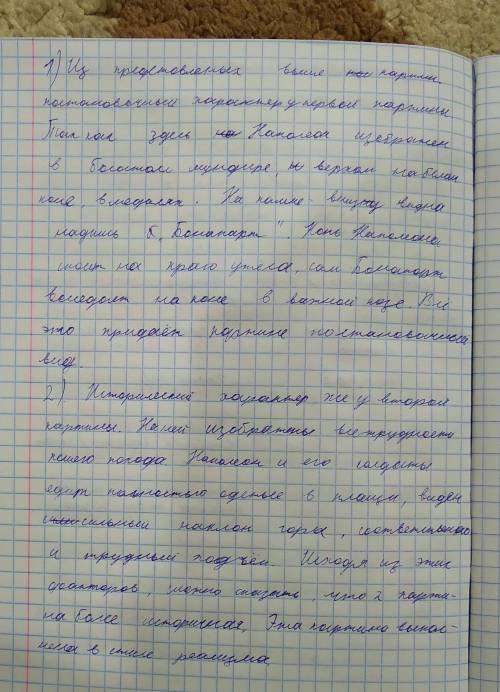 1) Из представленых выше картин
постановочный характер у первой картины
Так как здесь Наполеон изображён
в богатом мундире, верхом на белом
коне, в медалях. На камне внизу видна
надпись „Бонапарт". Конь Наполеона
стоит на краю утёса, сам Бонапарт
восседает на коне в важной позе. Всё
это придаёт картине постановочный
вид.
2) Исторический характер же у второй
картины. На ней изображены все трудности
пешего похода Наполеон и его солдаты
едут полностью одетые в плащи, виден
сильный наклон горы, соответственно
и трудный подъём. Исходя из этих
факторов, можно сказать, что 2 карти-
на более историчная. Эта картина выпол-
нена в стиле реализма